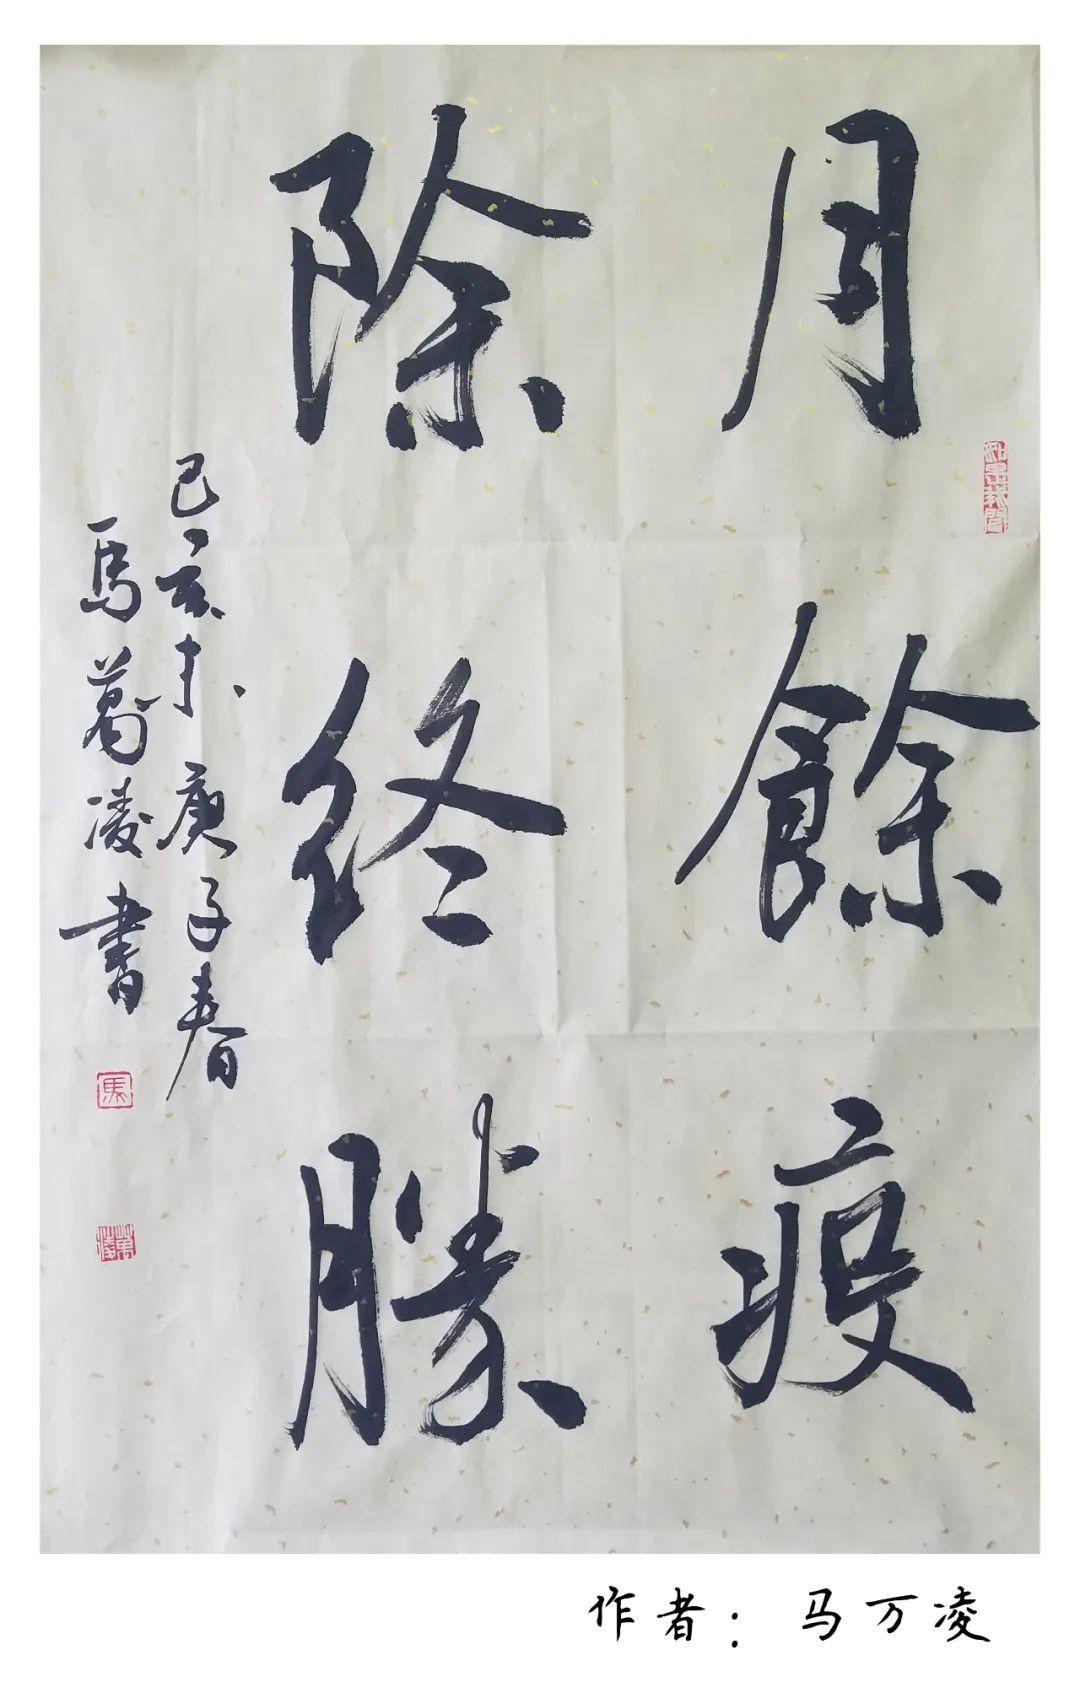 月餘疫
除終勝
己亥末庚子春
馬萬凌書
馬
萬凌
作者：马万凌